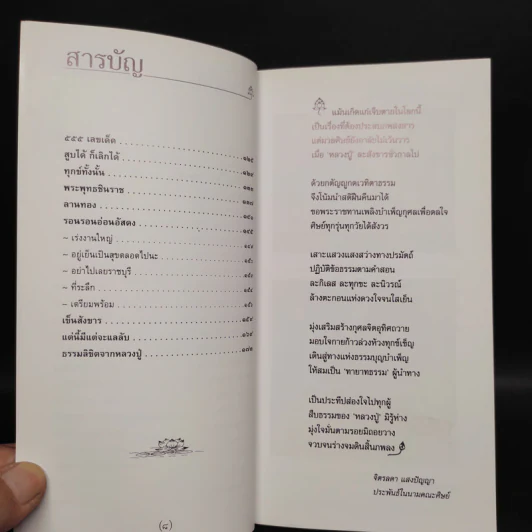 สารบัญ
๕๕๕ เลขเด็ด
สูบได้ ก็เลิกได้
ทุกข์ทั้งนั้น
พระพุทธชินราช
ลานทอง
รอนรอนอ่อนอัสดง
~ เร่งงานใหญ่
~ อยู่เย็นเป็นสุขตลอดไปนะ
~ อย่าไปเลยราชบุรี
~ ที่ระลึก
~ เตรียมพร้อม
เข็นสังขาร
แต่นี้มีแต่จะแลลับ
ธรรมลิขิตจากหลวงปู่
(๘)
แม้นเกิดแก่เจ็บตายในโลกนี้
เป็นเรื่องที่ต้องประสบ
เมื่อ 'หลวงปู่' ละสังขาร
ด้วยกตัญญูกตเวทิตาธรรม
จึงโน้มนำสติฝืนคืนมาได้
ขอพระราชทานเพลิงบำเพ็ญกุศลเพื่อดลใจ
ศิษย์ทุกรุ่นทุกวัยได้สังวร
เสาะแสวงแสงสว่างทางปรมัตถ์
ปฏิบัติข้อธรรมตามคำสอน
ละกิเลส ละทุกขะ ละนิวรณ์
ล้างตะกอนแห่งดวงใจจนใสเย็น
มุ่งเสริมสร้างกุศลจิตอุทิศถวาย
มอบใจกายก้าวล่วงห้วงทุกข์เข็ญ
เดินสู่ทางแห่งธรรมบุญบำเพ็ญ
ให้สมเป็น 'ทายาทธรรม' ผู้นำทาง
เป็นประทีปส่องใจไปทุกผู้
สืบธรรมของ 'หลวงปู่' มิรู้ห่าง
มุ่งใจมั่นตามรอยมิถอยวาง
จวบจนร่างจมดินสิ้นเพลง
จิตรลดา แสงปัญญา
ประพันธ์ในนามคณะศิษย์